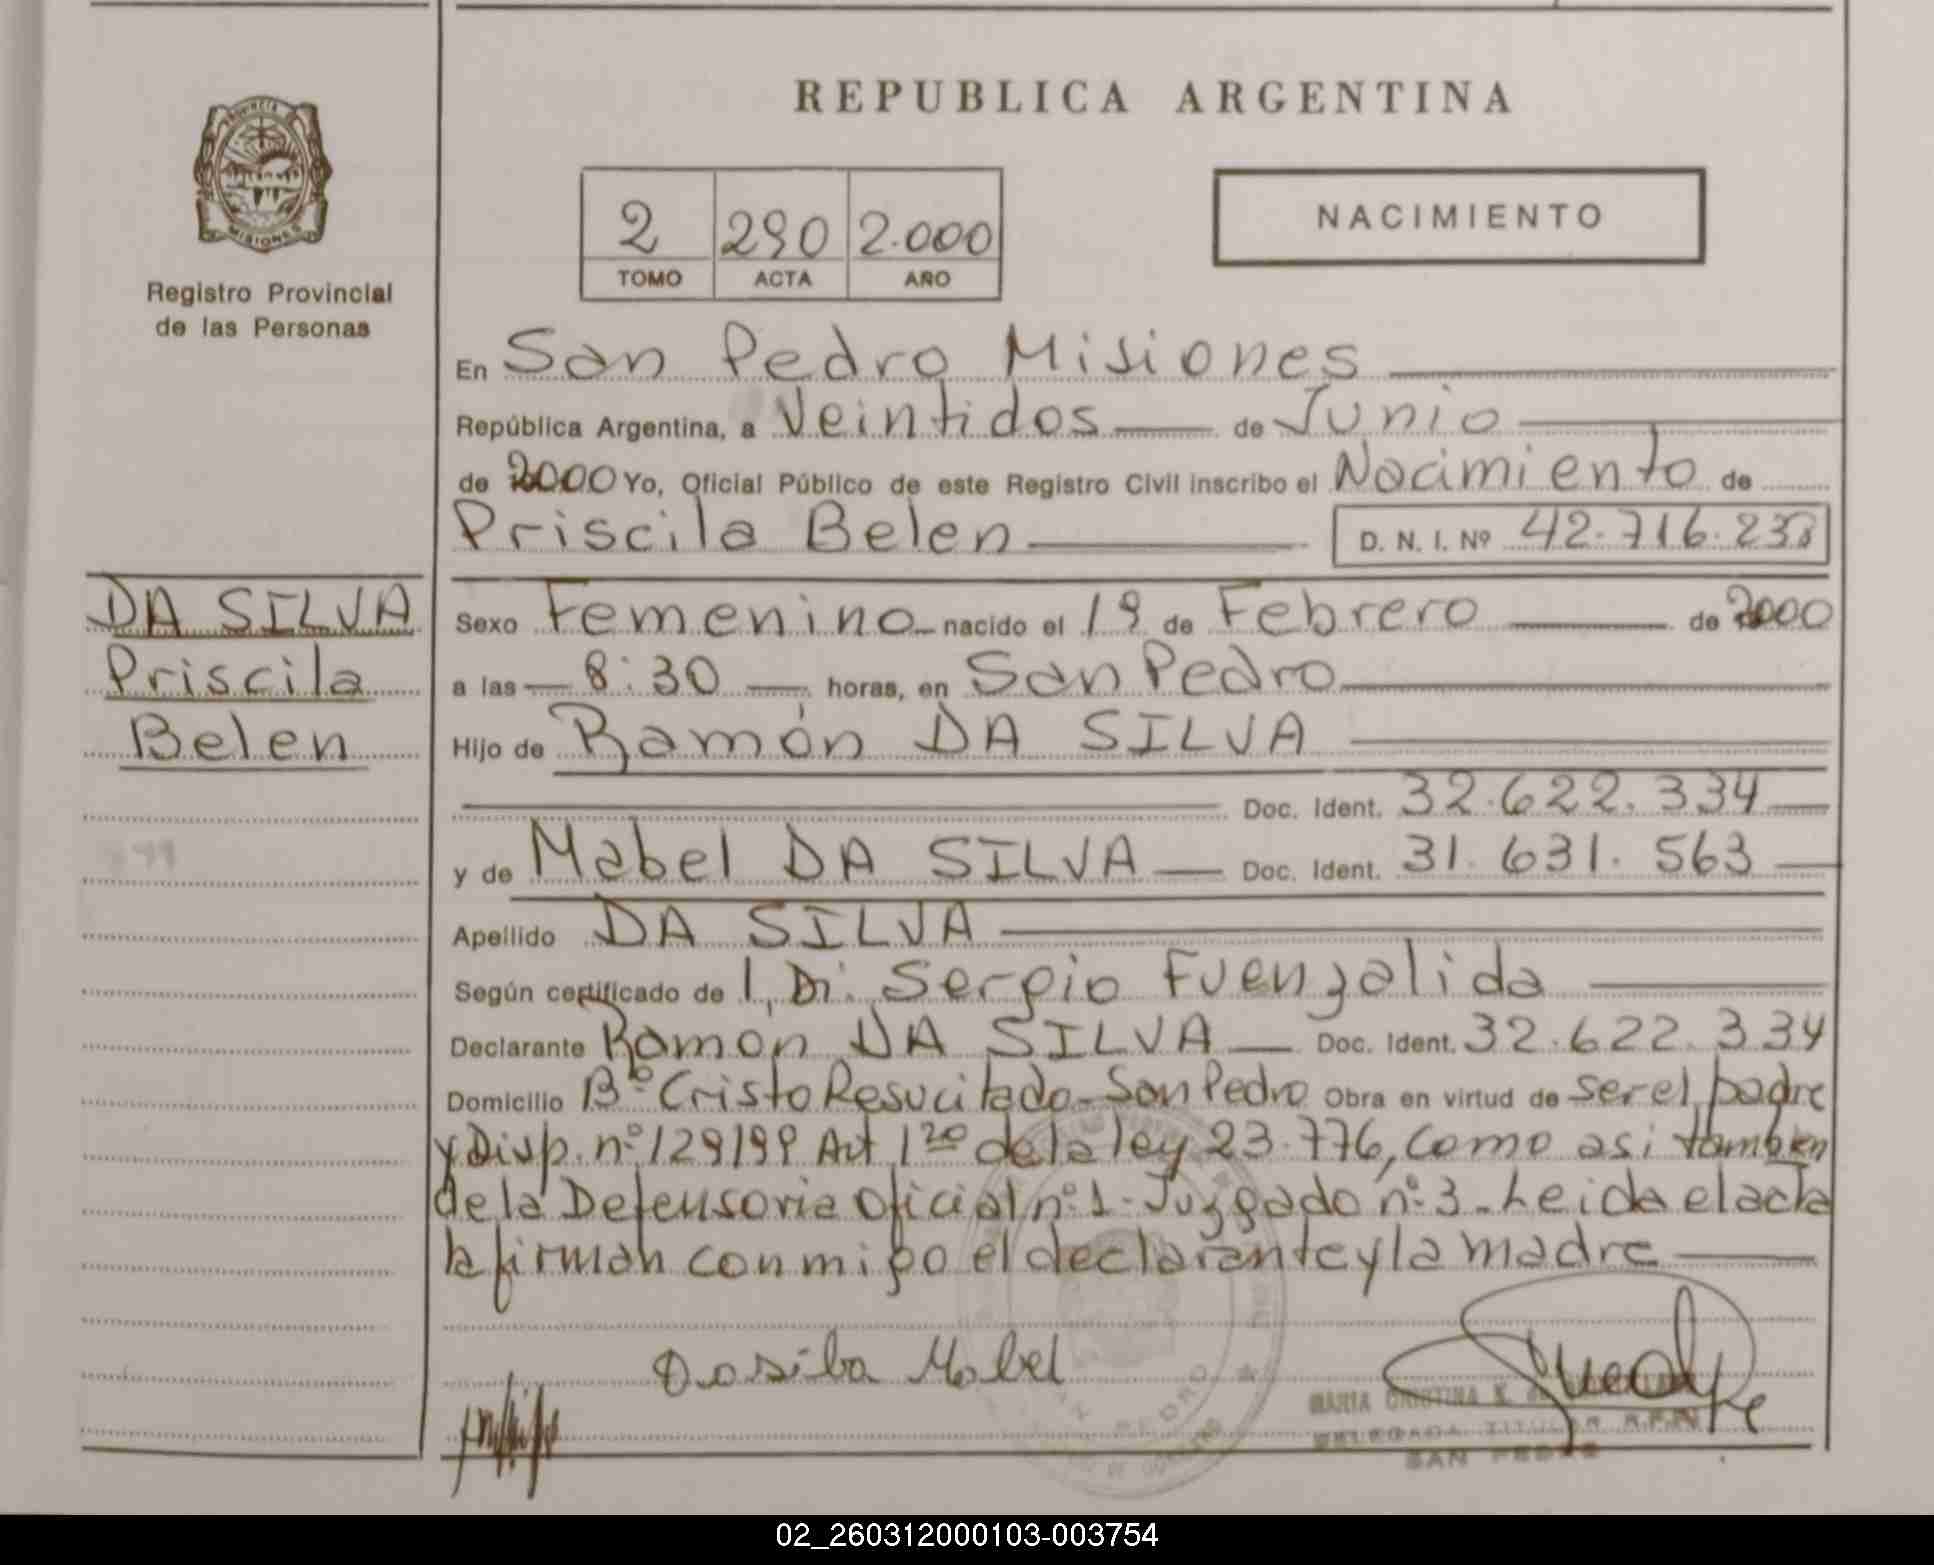 REPUBLICA ARGENTINA
PROVINCIA DE
MISIONES
Registro Provincial
de las Personas
2 290 2.000
TOMO ACTA AÑO
NACIMIENTO
En San Pedro Misiones
República Argentina, a Veintidos de Junio
de 2000 Yo, Oficial Público de este Registro Civil inscribo el Nacimiento de
Priscila Belen D. N. I. Nº 42.716.238
DA SILVA
Priscila
Belen
Sexo Femenino nacido el 19 de Febrero de 2000
a las 8:30 horas, en San Pedro
Hijo de Ramón DA SILVA
Doc. Ident. 32.622.334
y de Mabel DA SILVA Doc. Ident. 31.631.563
Apellido DA SILVA
Según certificado de 1, Di. Sergio Fuenzalida
Declarante Ramon DA SILVA Doc. Ident. 32.622.334
Domicilio Bº Cristo Resucitado-San Pedro Obra en virtud de ser el padre
y Disp. nº 129199 Art 1º de la ley 23.776, como asi tambien
de la Defensoria Oficial nº 1-Juzgado nº 3. Leida el acta
la firman conmigo el declarante y la madre
Dasilba Mabel
MARIA CRISTINA K.
DELEGADA TITULAR R.P.P.
SAN PEDRO
02_260312000103-003754